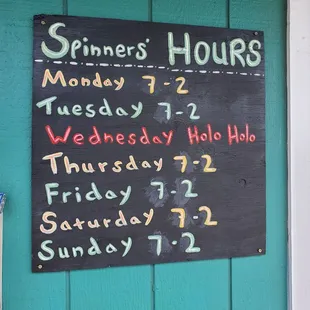 Spinners' HOURS
Monday 7-2
Tuesday 7-2
Wednesday Holo Holo
Thursday 7-2
Friday 7-2
Saturday 7-2
Sunday 7-2